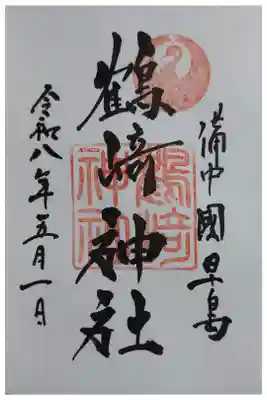 備中國早島
鶴﨑神社
鶴﨑神社
令和八年五月一日